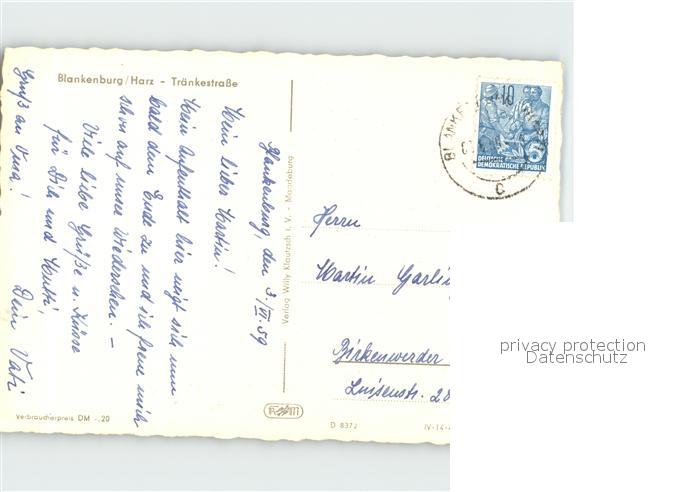 Blankenburg/Harz - Tränkestraße
Blankenburg, den 3/VI. 59
Mein lieber Martin!
Mein Aufenthalt hier neigt sich nun
bald dem Ende zu und ich freue mich
schon auf unser Wiedersehen. -
Viele liebe Grüße u. Küsse
für Dich und Mutti,
Dein Vati
Gruß an
Verbraucherpreis DM -,20
Verlag Willy Klautzsch i. V. - Magdeburg
BLANKENBURG
10
DEUTSCHE
DEMOKRATISCHE REPUBLIK
c
Herrn
Martin Garling
Birkenwerder
Luisenstr. 28
D 8372
IV-14-
privacy protection
Datenschutz